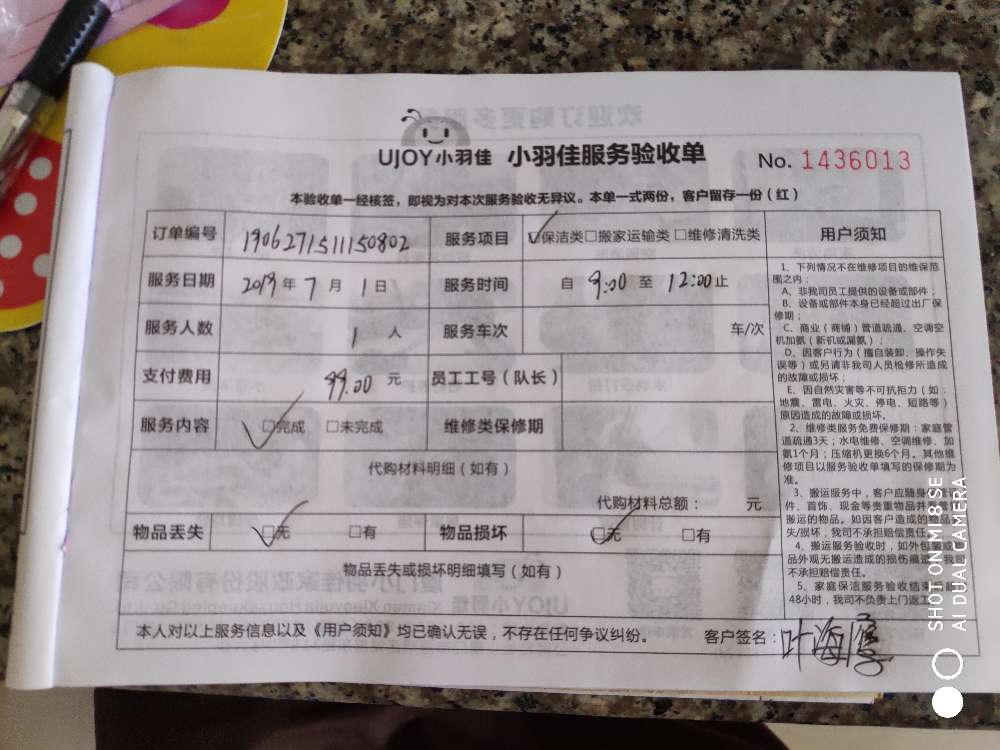 UJOY小羽佳 小羽佳服务验收单 No. 1436013
本验收单一经核签，即视为对本次服务验收无异议。本单一式两份，客户留存一份（红）
订单编号 1906271511150802 服务项目 ☑保洁类□搬家运输类 □维修清洗类
服务日期 2019年 7 月 1 日 服务时间 自 9:00 至 12:00止
服务人数 1 人 服务车次 车/次
支付费用 99.00 元 员工工号（队长）
服务内容 ☑完成 □未完成 维修类保修期
代购材料明细（如有）
代购材料总额： 元
物品丢失 ☑无 □有 物品损坏 ☑无 □有
物品丢失或损坏明细填写（如有）
本人对以上服务信息以及《用户须知》均已确认无误，不存在任何争议纠纷。 客户签名：叶海
用户须知
1、下列情况不在维修项目的维保范
围之内：
A、非我司员工提供的设备或部件；
B、设备或部件本身已经超过出厂保
修期；
C、商业（商铺）管道疏通、空调空
机加氨（新机或漏氨）；
D、因客户行为（擅自装卸、操作失
误等）或另请非我司人员检修所造成
的故障或损坏；
E、因自然灾害等不可抗拒力（如：
地震、雷电、火灾、停电、短路等）
原因造成的故障或损坏。
2、维修类服务免费保修期：家庭管
道疏通3天；水电维修、空调维修、加
氨1个月；压缩机更换6个月。其他维
修项目以服务验收单填写的保修期为
准。
3、搬运服务中，客户应随身
件、首饰、现金等贵重物品并
搬运的物品。如因客户造成的物品
失/损坏，我司不承担赔偿责任。
4、搬运服务验收时，如外包装或
品外观无搬运造成的损伤痕迹，我司
不承担赔偿责任。
5、家庭保洁服务验收结束后超
48小时，我司不负责上门返工
SHOT ON MI 8 SE
AI DUAL CAMERA